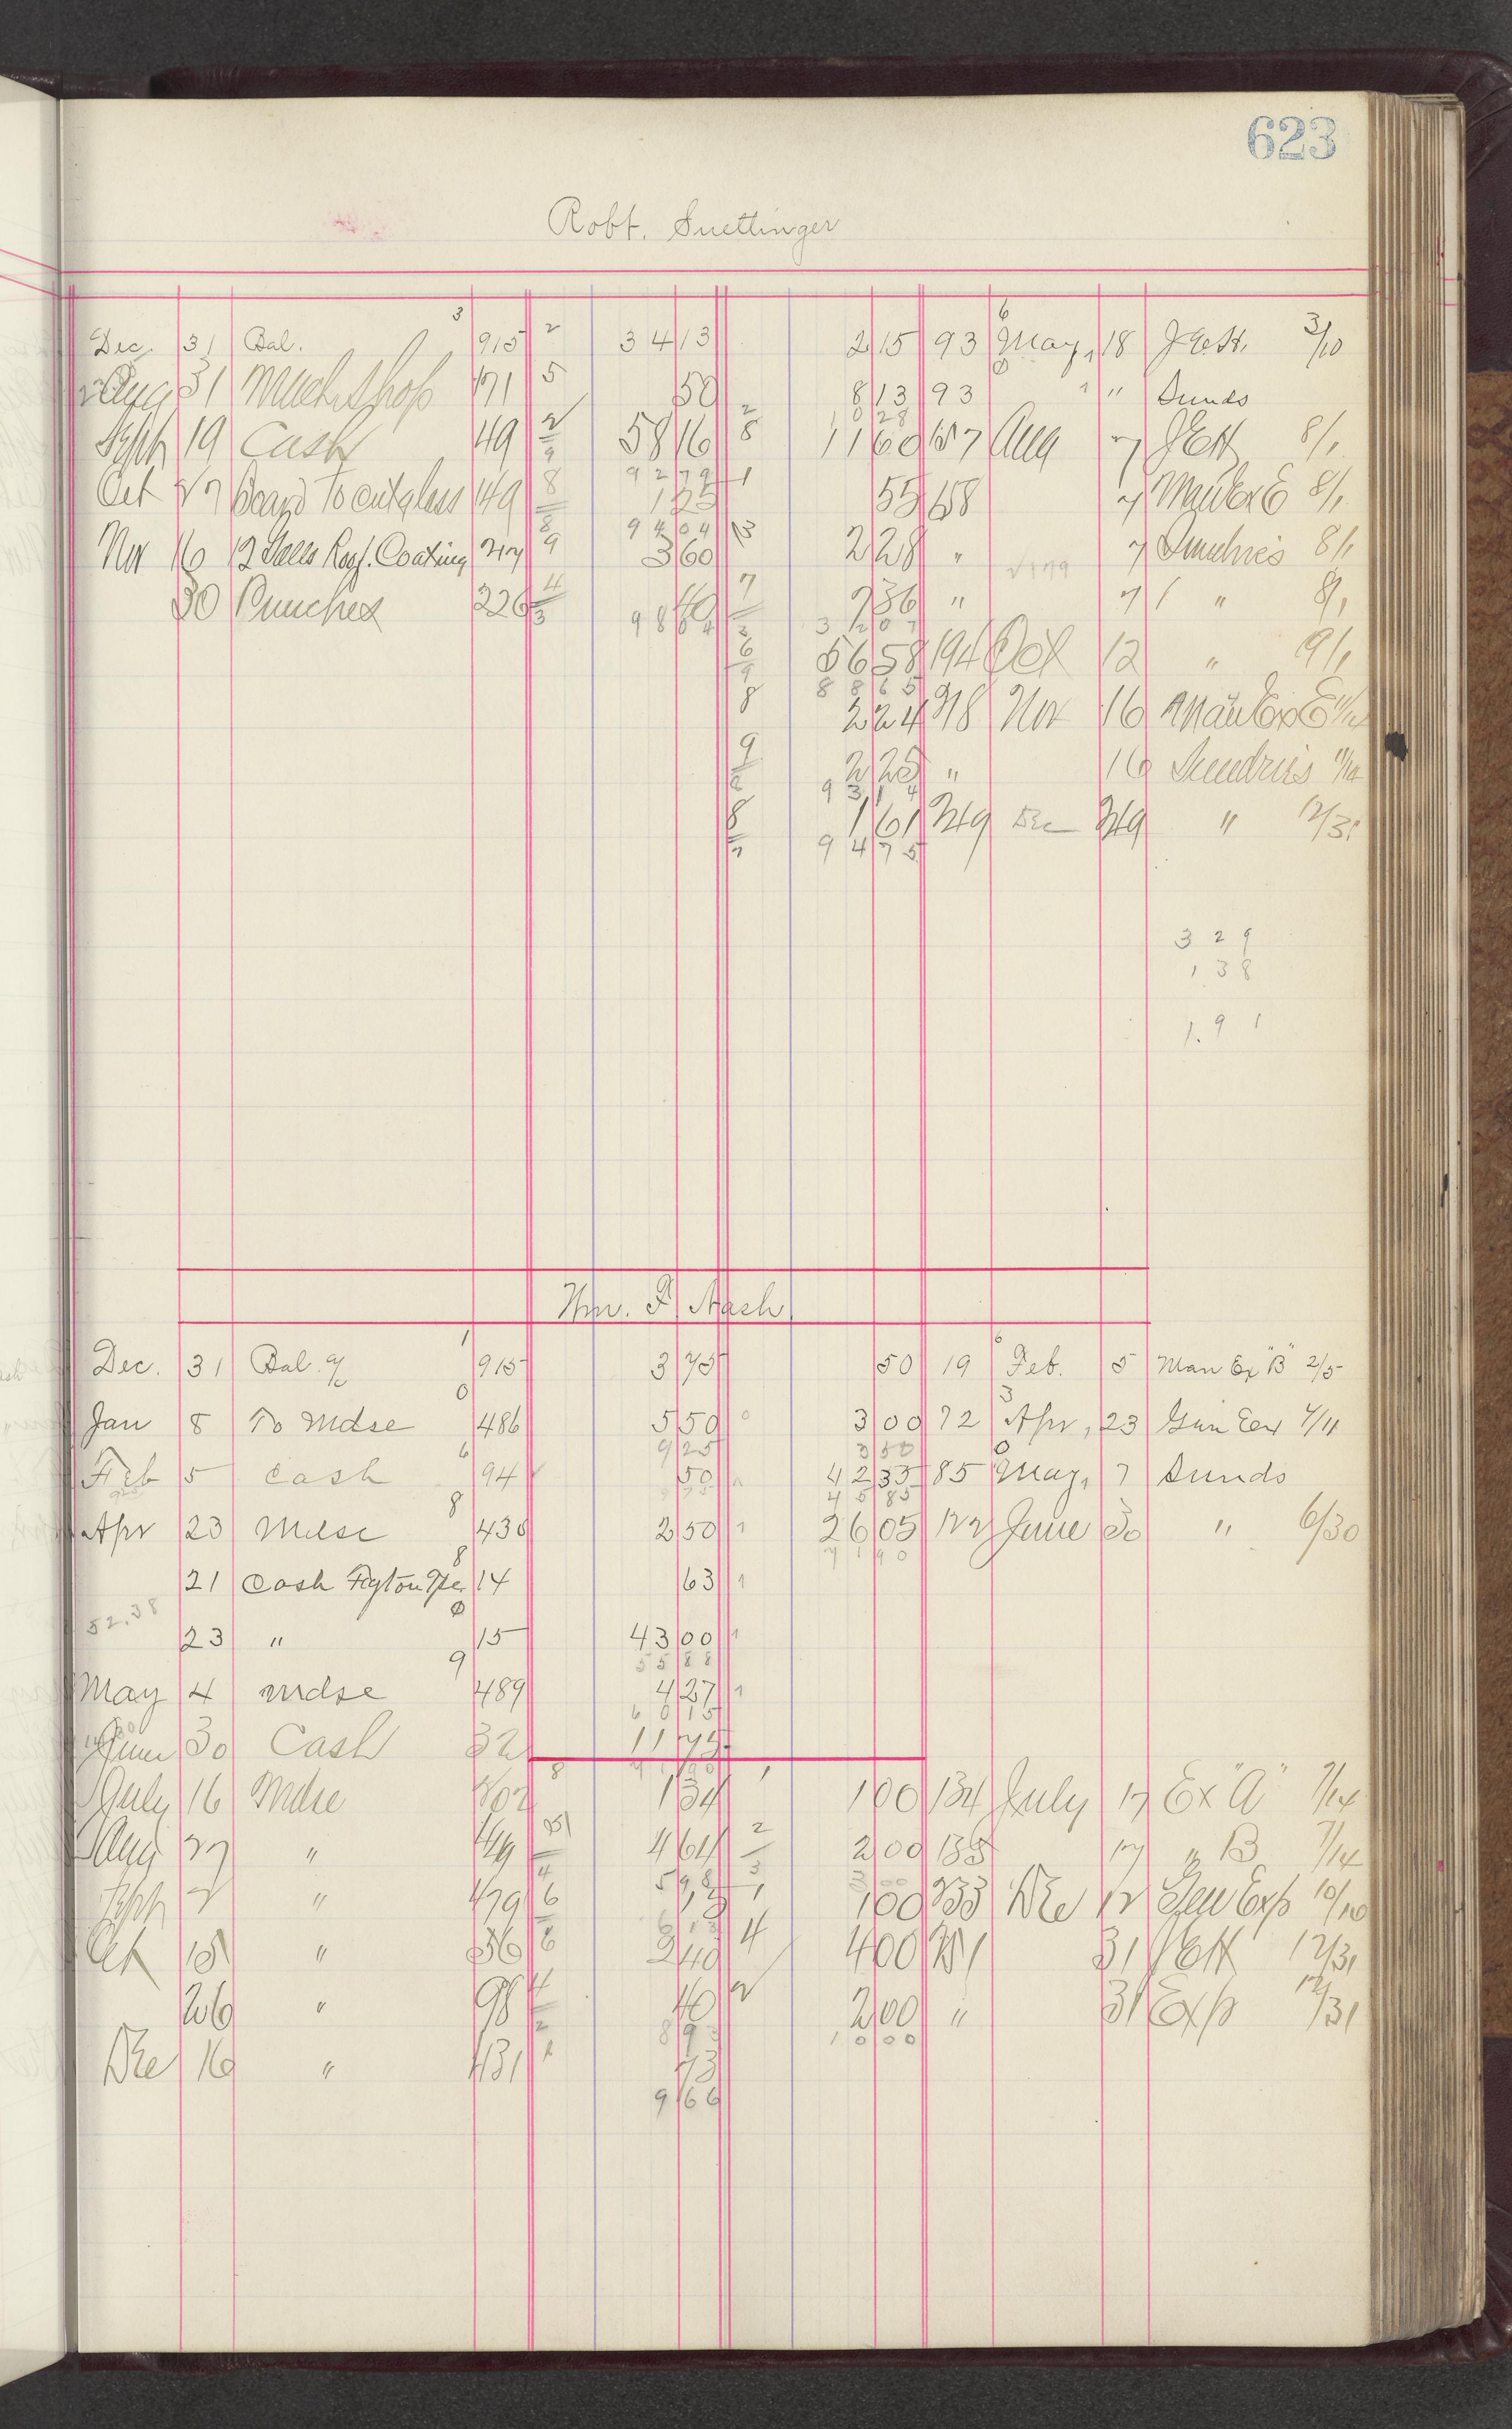 623
Robt. Suettinger
Dec. 31 Bal. 3 915 2 34 13 2 15 93 6 May, 18 J.E.H. 3/10
Aug 31 Mach Shop 171 5 50 8 13 93 " " Sunds
10 28
Sept 19 Cash 49 58 16 11 60 157 Aug 7 JEH 8/1
92 79
Oct 27 Board to cut glass 149 8 1 25 55 158 7 Man Ex E 8/1
94 04
Nov 16 12 Galls Roof. Coating 217 9 3 60 2 28 " 7 Sundries 8/1
30 Punches 226 40 7 36 " 7 " 8/1
98 04 32 07
56 58 194 Oct 12 " 9/1
88 65
2 24 218 Nov 16 Man Ex E 11/12
2 25 " 16 Sundries 11/12
93 14
1 61 249 Dec 249 " 12/31
94 75
3 29
1 38
1.91
Wm. F Nash
Dec. 31 Bal. % 1 915 3 75 50 19 6 Feb. 5 Man Ex "B" 2/5
Jan 8 To Mdse 0 486 5 50 3 00 72 3 Apr, 23 Gen Ex 4/11
9 25 3 50
Feb 5 Cash 6 94 50 42 35 85 0 May, 7 Sunds
9 75 45 85
Apr 23 Mdse 8 430 2 50 26 05 122 June 30 " 6/30
71 90
21 Cash 8 14 63
52.38
23 " 0 15 43 00
55 88
May 4 mdse 9 489 4 27
60 15
June 30 Cash 32 11 75
71 90
July 16 Mdse 102 8 1 34 1 00 134 July 17 Ex "A" 7/14
Aug 27 " 449 4 64 2 00 135 17 " B 7/14
5 98 3 00
Sept 2 " 479 6 15 1 00 233 Dec 12 Gen Exp 10/10
6 13
Oct 15 " 36 6 2 40 4 00 251 31 JEH 12/31
26 " 98 40 2 00 " 31 Exp 12/31
8 93 10 00
Dec 16 " 431 73
9 66